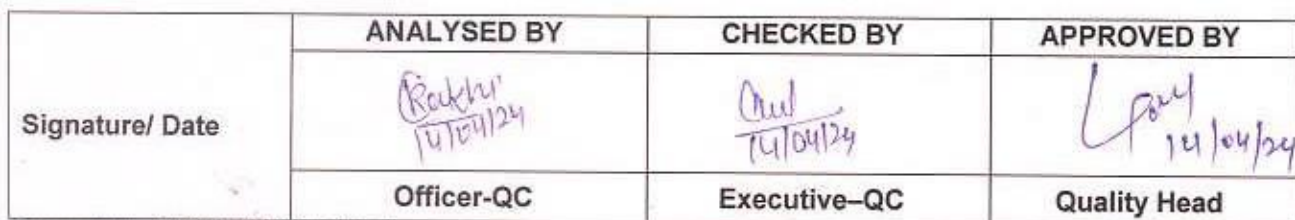 ANALYSED BY CHECKED BY APPROVED BY
Signature/ Date
Rakhi
14/04/24
14/04/24
14/04/24
Officer-QC Executive–QC Quality Head